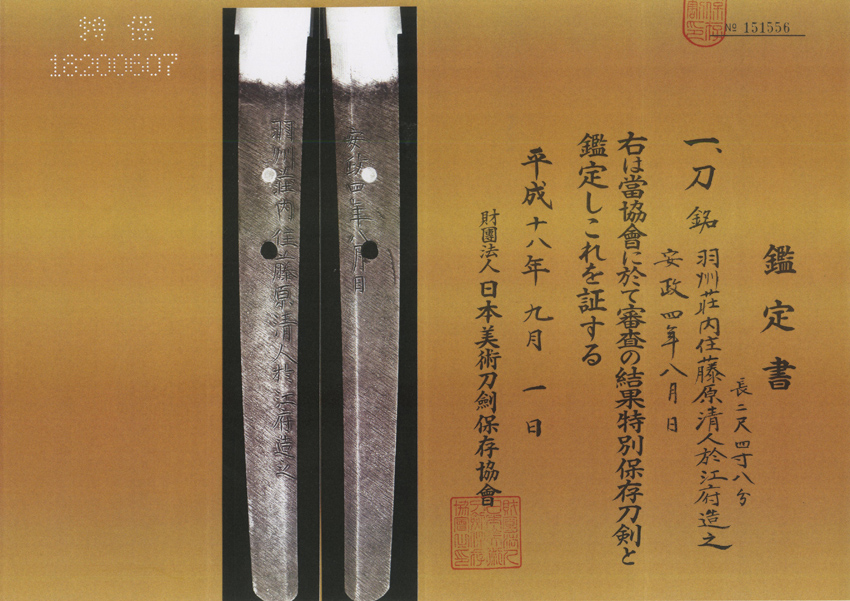 № 151556
鑑定書
一、刀 銘 羽州荘内住藤原清人於江府造之
長二尺四寸八分
安政四年八月日
右は當協會に於て審査の結果特別保存刀剣と
鑑定しこれを証する
平成十八年九月一日
財團法人日本美術刀劍保存協會
安政四年八月日
羽州荘内住藤原清人於江府造之
特保
18200607